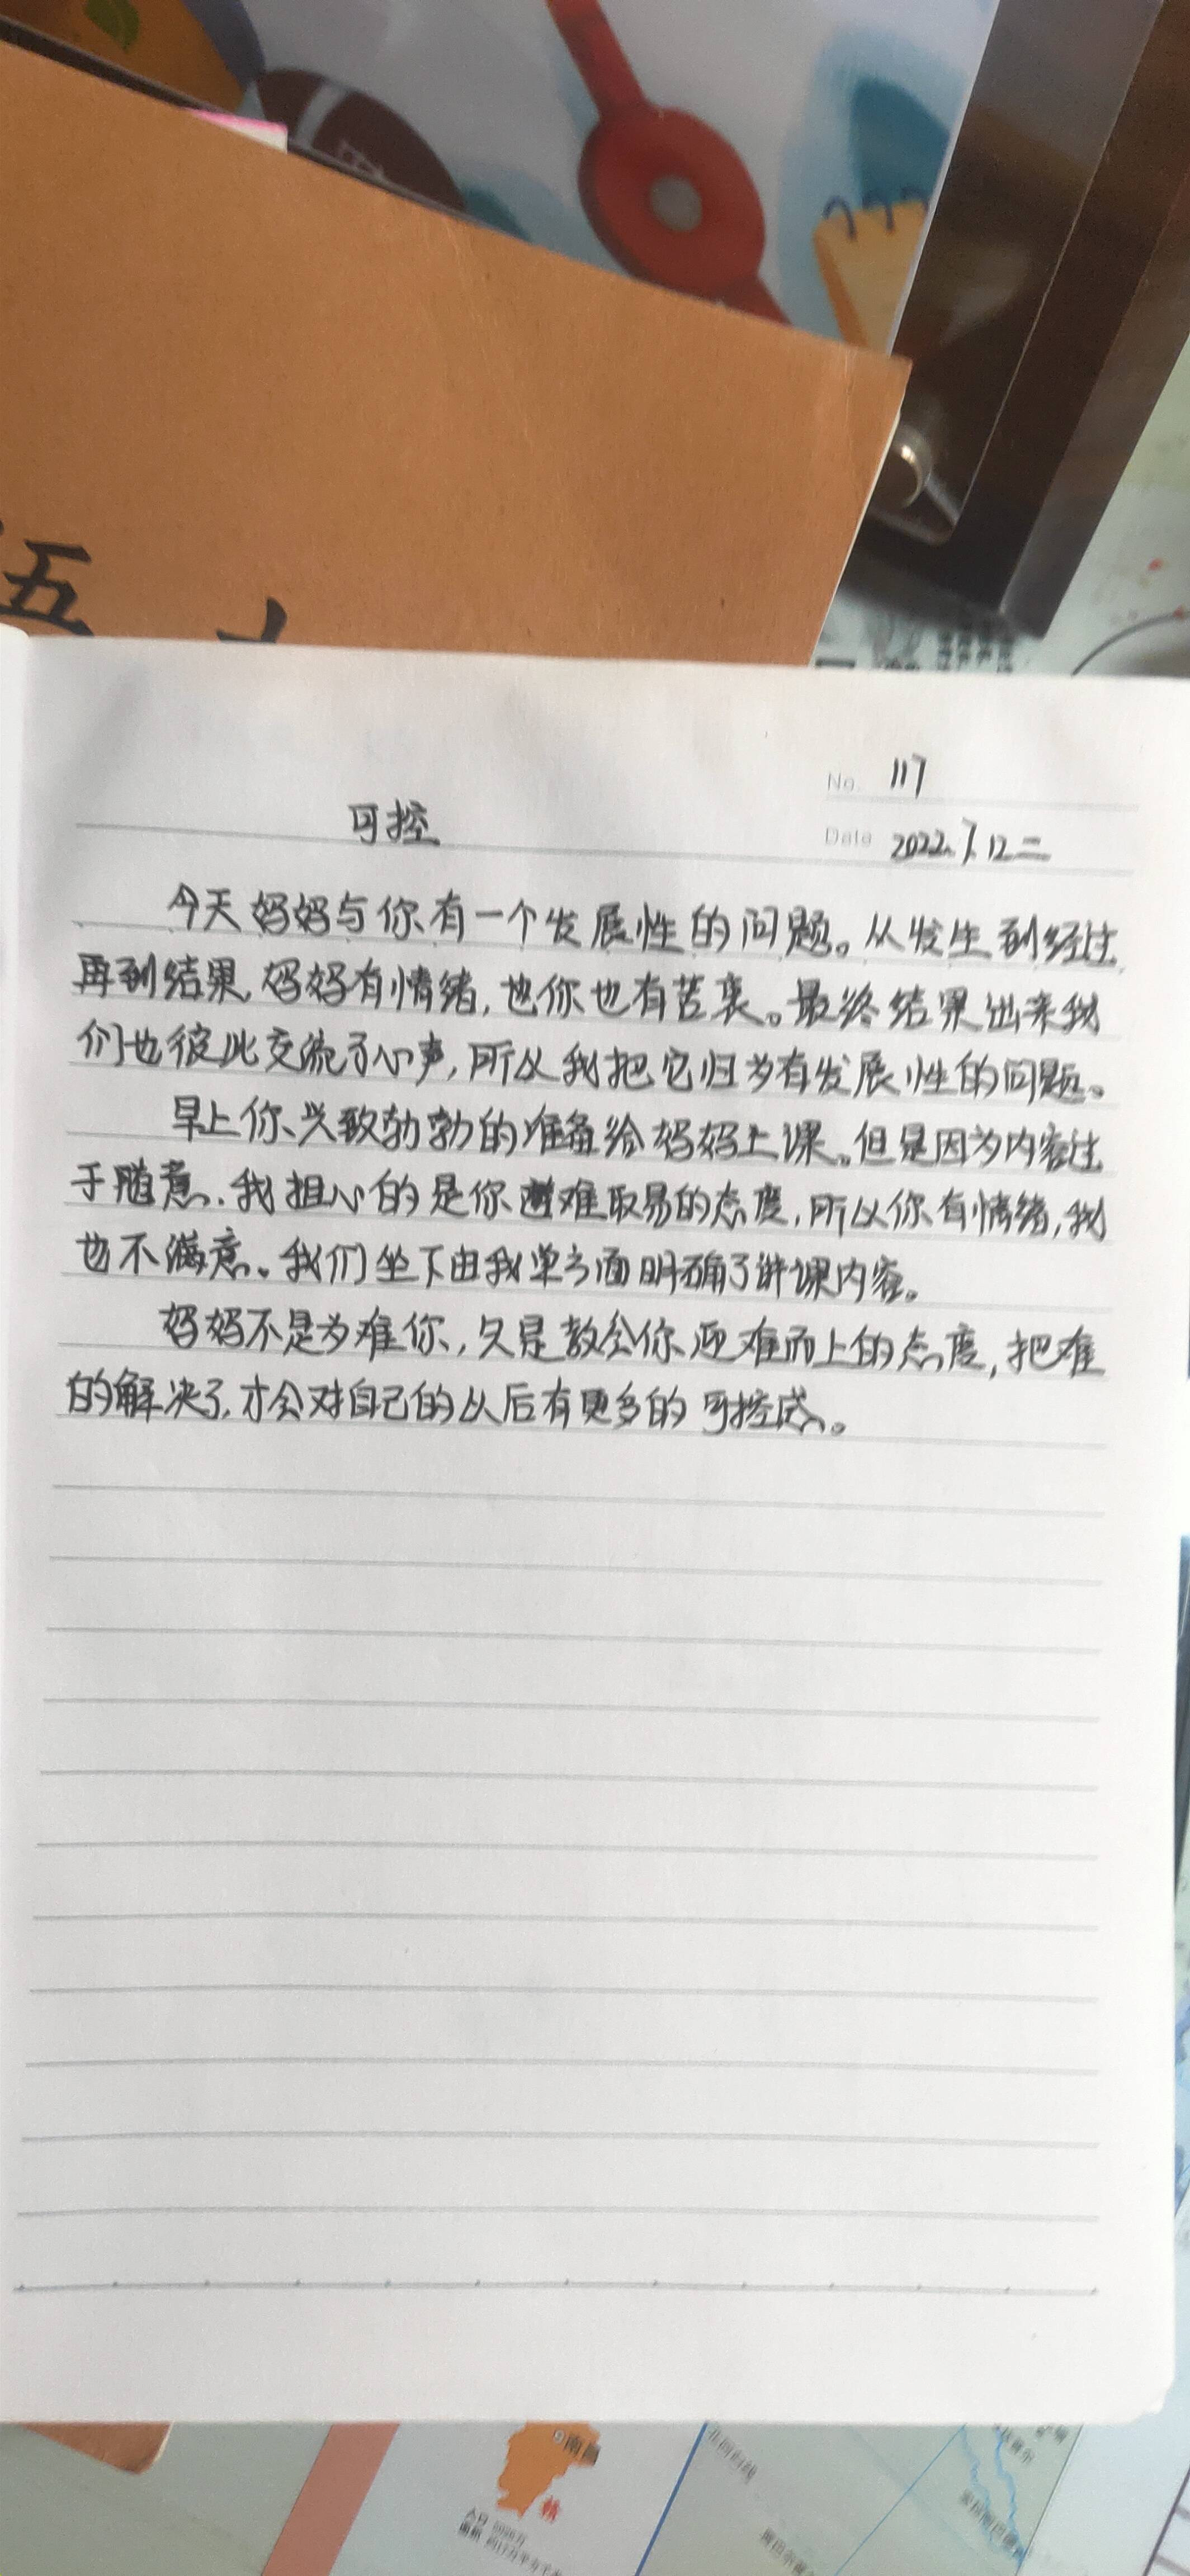 五
No. 117
可控
Date 2022.7.12 二
今天妈妈与你有一个发展性的问题。从发生到经过
再到结果,妈妈有情绪,也你也有苦衷。最终结果出来我
们也彼此交流了心声,所以我把它归为有发展性的问题。
早上你兴致勃勃的准备给妈妈上课。但是因为内容过
于随意,我担心的是你避难取易的态度,所以你有情绪,我
也不满意。我们坐下由我单方面明确了讲课内容。
妈妈不是为难你,只是教会你迎难而上的态度,把难
的解决了,才会对自己的以后有更多的可控感。
南昌
赣
北回归线